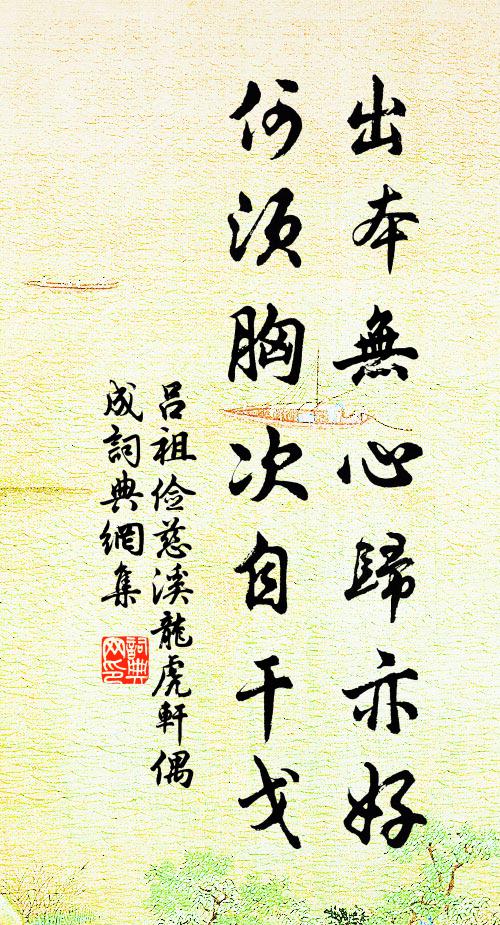 出本無心歸亦好
何須胸次自干戈
呂祖儉慈溪龍虎軒偶
成詞典網集
詞典
网印